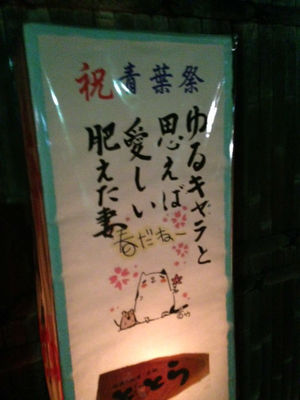 祝青葉祭
ゆるキャラと
思えば
愛しい
肥えた妻
春だねー
とら